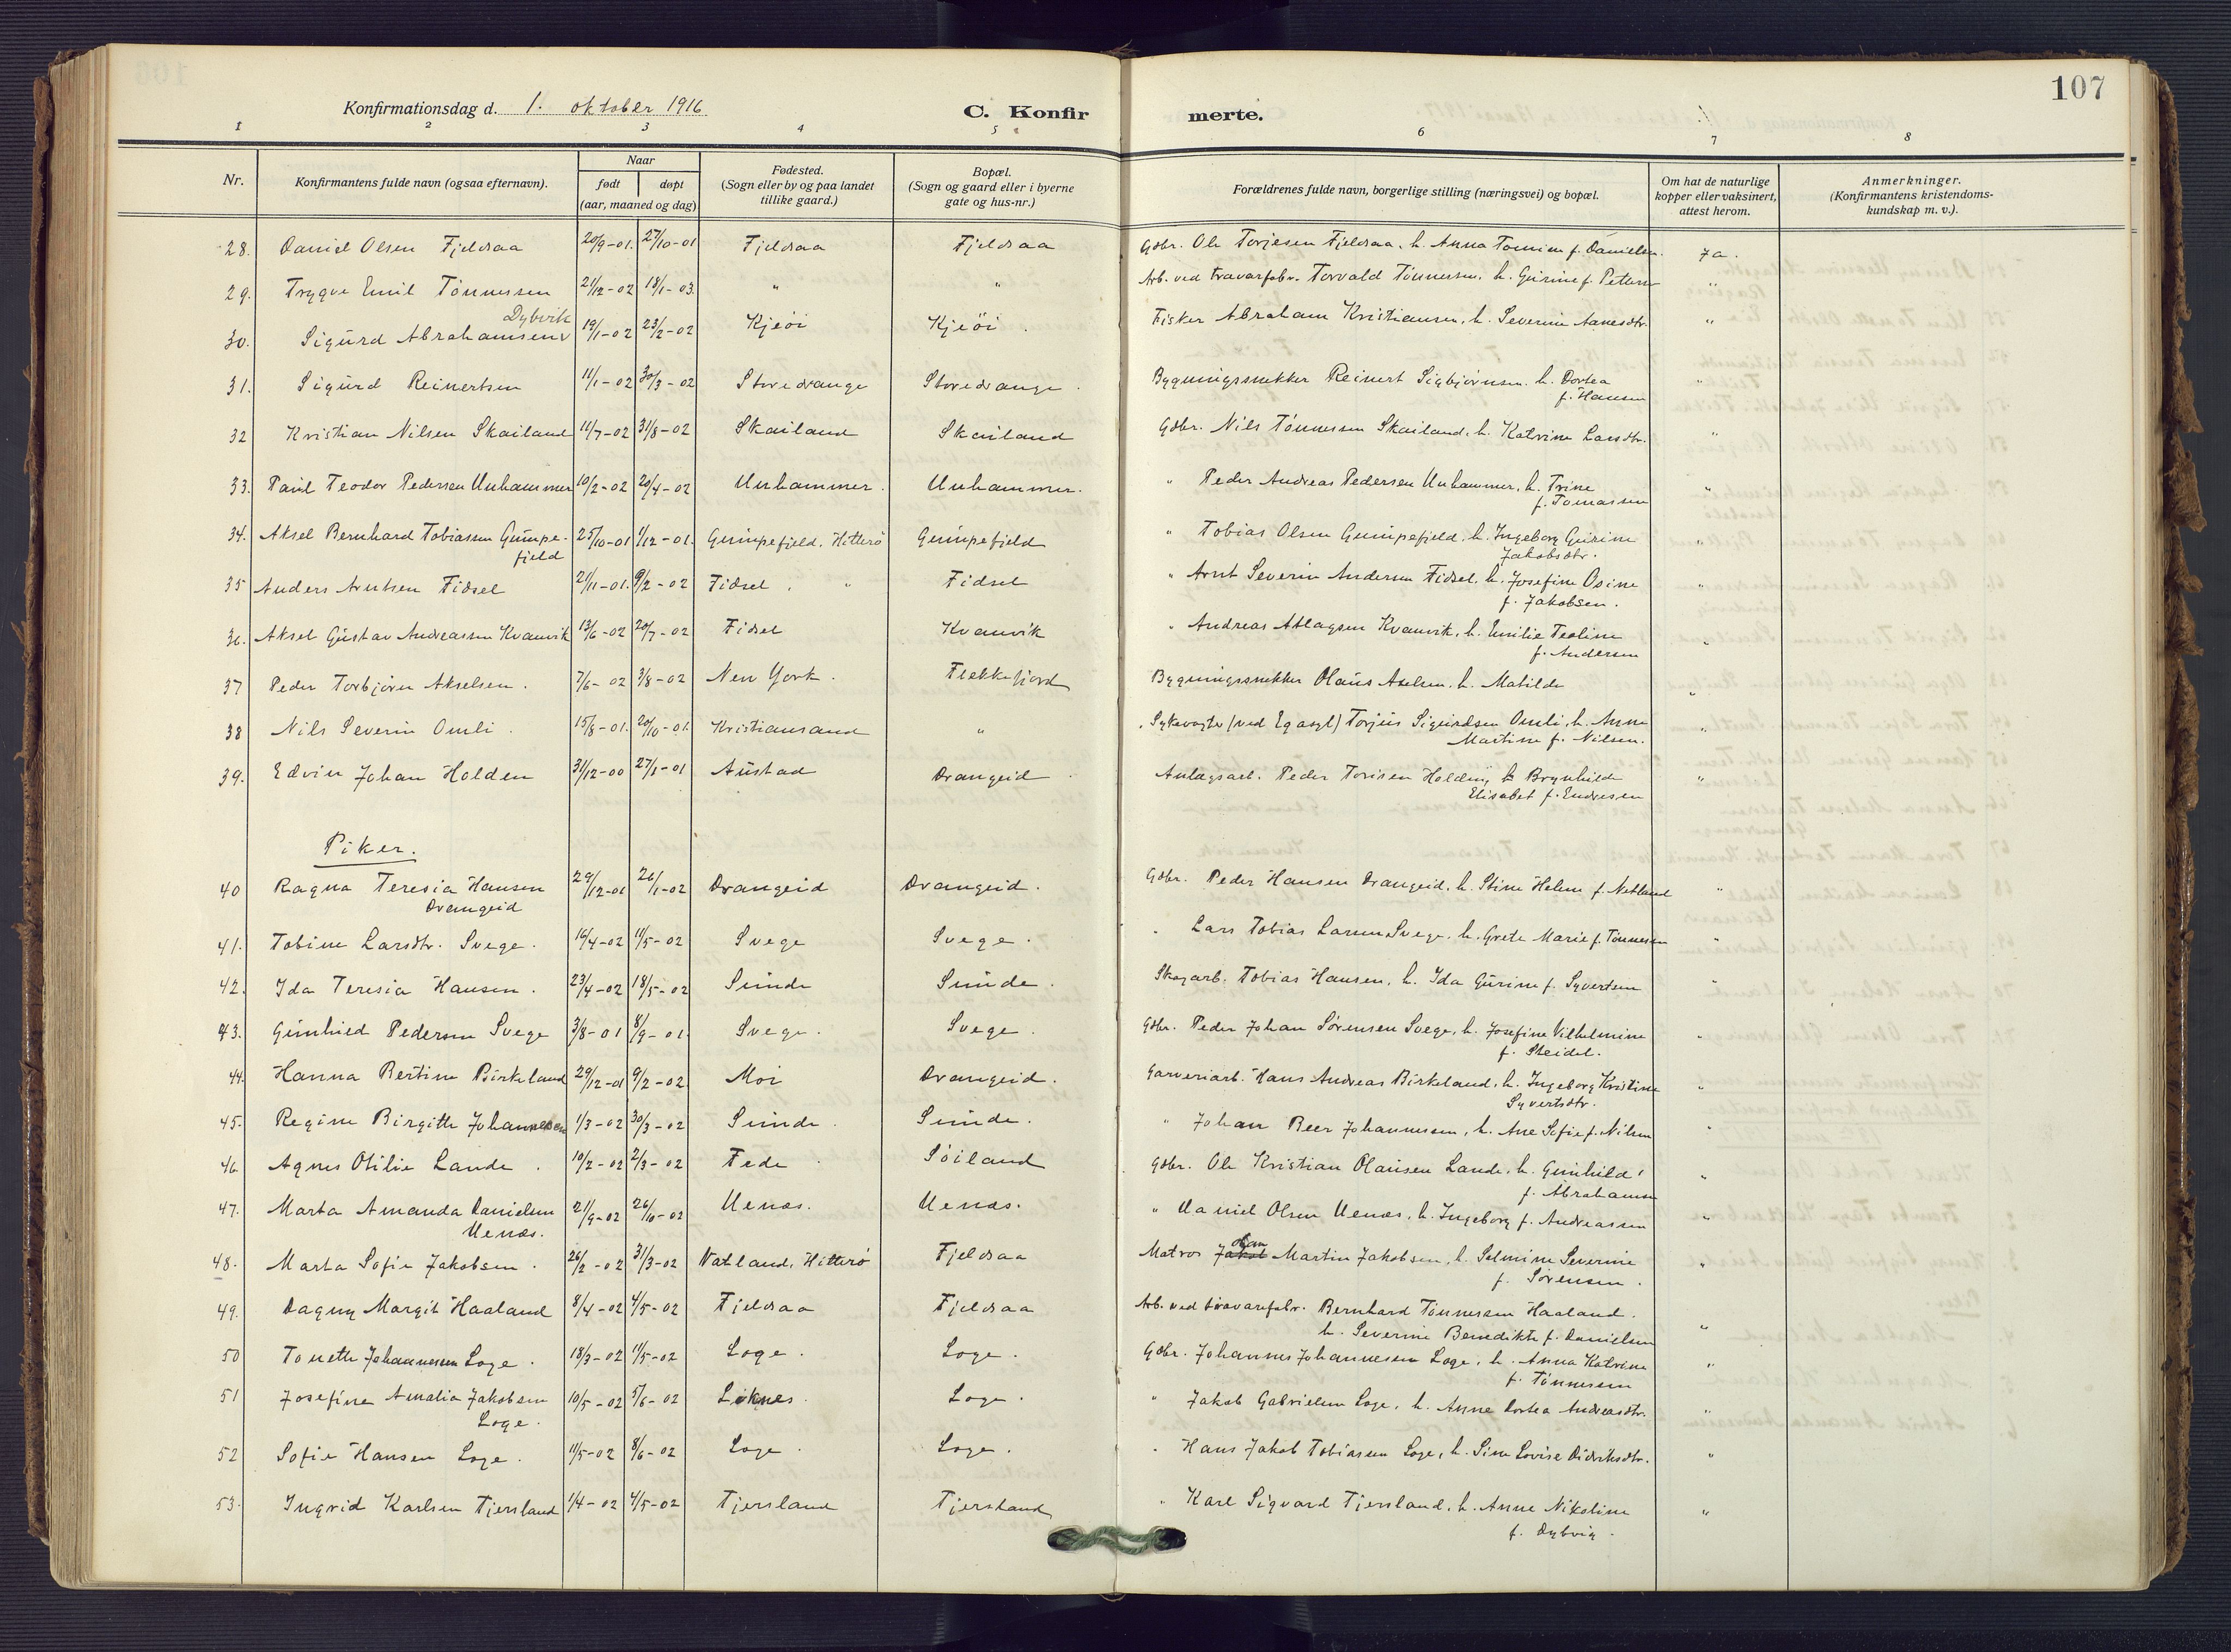 107
Konfirmationsdag d. 1. oktober 1916
C. Konfirmerte.
1 2 3 4 5 6 7 8
Nr.
Konfirmantens fulde navn (ogsaa efternavn).
Naar
født døpt
(aar, maaned og dag)
Fødested.
(Sogn eller by og paa landet
tillike gaard.)
Bopæl.
(Sogn og gaard eller i byerne
gate og hus-nr.)
Forældrenes fulde navn, borgerlige stilling (næringsvei) og bopæl.
Om hat de naturlige
kopper eller vaksinert,
attest herom.
Anmerkninger.
(Konfirmantens kristendoms-
kundskap m. v.).
28. Daniel Olsen Fjeldsaa 20/9-01. 27/10-01 Fjeldsaa Fjeldsaa Gdbr. Ole Torjesen Fjeldsaa, h. Anna Tomine f. Danielsen. Ja.
29. Trygve Emil Tönnessen 21/12-02 18/1-03. " " Arb. ved travarfabr. Torvald Tönnessen, h. Gurine f. Pettersen "
Dybvik
30. Sigurd Abrahamsen 19/1-02 23/2-02 Kjeöi Kjeöi. Fisker Abraham Kristiansen, h. Severine Aanesdtr. "
31. Sigurd Reinertsen 11/1-02 30/3-02 Storedrange Storedrange. Bygningssnekker Reinert Sigbjörnsen. h. Dortea "
f. Hansen
32 Kristian Nilsen Skailand 11/7-02 31/8-02 Skailand Skailand Gdbr. Nils Tönnessen Skailand, h. Katrine Larsdtr. "
33. Paul Teodor Pedersen Unhammer 10/2-02 20/4-02 Unhammer. Unhammer. " Peder Andreas Pedersen Unhammer, h. Trine "
f. Tomassen
34. Aksel Bernhard Tobiassen Gumpe- 25/10-01 1/12-01. Gumpefjeld. Hitterö Gumpefjeld " Tobias Olsen Gumpefjeld. h. Ingeborg Gurine "
field Jakobsdtr.
35 Anders Arntsen Fidsel 21/11-01. 9/2-02 Fidsel. " Fidsel " Arnt Severin Andersen Fidsel. h. Josefine Osine "
f. Jakobsen.
36. Aksel Gustav Andreassen Kvanvik 13/6-02 20/7-02 Fidsel Kvanvik " Andreas Atlagsen Kvanvik, h. Emilie Teoline "
f. Andersen
37 Peder Torbjörn Akselsen. 7/6-02 3/8-02 New York. Flekkefjord Bygningssnekker Olaus Axelsen. h. Matilde "
38 Nils Severin Omli. 15/8-01. 20/10-01. Kristiansand " Sykevogter (ved Eg asyl) Torjus Sigurdsen Omli, h. Anne "
Martine f. Nilsen.
39. Edvin Johan Holden 31/12-00 27/1-01 Austad Drangeid. Anlægsarb. Peder Torisen Holden, h. Brynhilde "
Elisabet f. Endresen
Piker.
40 Ragna Teresia Hansen 29/12-01 26/1-02 Drangeid Drangeid. Gdbr. Peder Hansen Drangeid, h. Stine Helene f. Netland "
Drangeid
41. Tobine Larsdtr. Svege. 16/4-02 11/5-02 Svege Svege. " Lars Tobias Larsen Svege, h. Grete Marie f. Tönnesen "
42. Ida Teresia Hansen. 23/4-02 18/5-02 Sunde Sunde. Skogarb. Tobias Hansen, h. Ida Gurine f. Syvertsen "
43. Gunhild Pedersen Svege 3/8-01 8/9-01. Svege. Svege. Gdbr. Peder Johan Sörensen Svege, h. Josefine Vilhelmine "
f. Steidel.
44. Hanna Bertine Birkeland 29/12-01 9/2-02. Moi Drangeid. Garveriarb. Hans Andreas Birkeland, h. Ingeborg Kristine "
Syvertsdtr.
45. Regine Birgitte Johannesen 1/3-02 30/3-02 Sunde. Sunde. " Johan Beer Johannessen, h. Ane Sofie f. Nilsen "
46 Agnes Otilie Lande. 10/2-02 2/3-02 Fede. Söiland Gdbr. Ole Kristian Olausen Lande, h. Gunhild "
f. Abrahamsen
47. Marta Amanda Danielsen 21/9-02 26/10-02 Uenæs. Uenæs. " Daniel Olsen Uenæs, h. Ingeborg f. Andreassen "
Uenæs.
48. Marta Sofie Jakobsen. 26/2-02 31/3-02 Natland, Hitterö Fjeldsaa Matros Johan Martin Jakobsen, h. Selmine Severine "
f. Sörensen.
49. Dagny Margit Haaland 8/4-02 4/5-02 Fjeldsaa Fjeldsaa Arb. ved travarefabr. Bernhard Tönnessen Haaland.
h. Severine Benedikte f. Danielsen "
50 Tonette Johannesen Loge. 18/3-02 11/5-02 Loge. Loge. Gdbr. Johannes Johannesen Loge, h. Anna Katrine "
f. Tönnessen
51 Josefine Amalia Jakobsen 10/5-02 5/6-02 Loknes. Loge. " Jakob Gabrielsen Loge, h. Anne Dortea Andreasdtr. "
Loge.
52 Sofie Hansen Loge. 11/5-02 8/6-02 Loge. Loge. " Hans Jakob Tobiassen Loge, h. Sine Lovise Didriksdtr. "
53. Ingrid Karlsen Tjersland 1/4-02 4/5-02 Tjersland Tjersland " Karl Sigvard Tjersland, h. Anne Nikoline "
f. Dybvig.